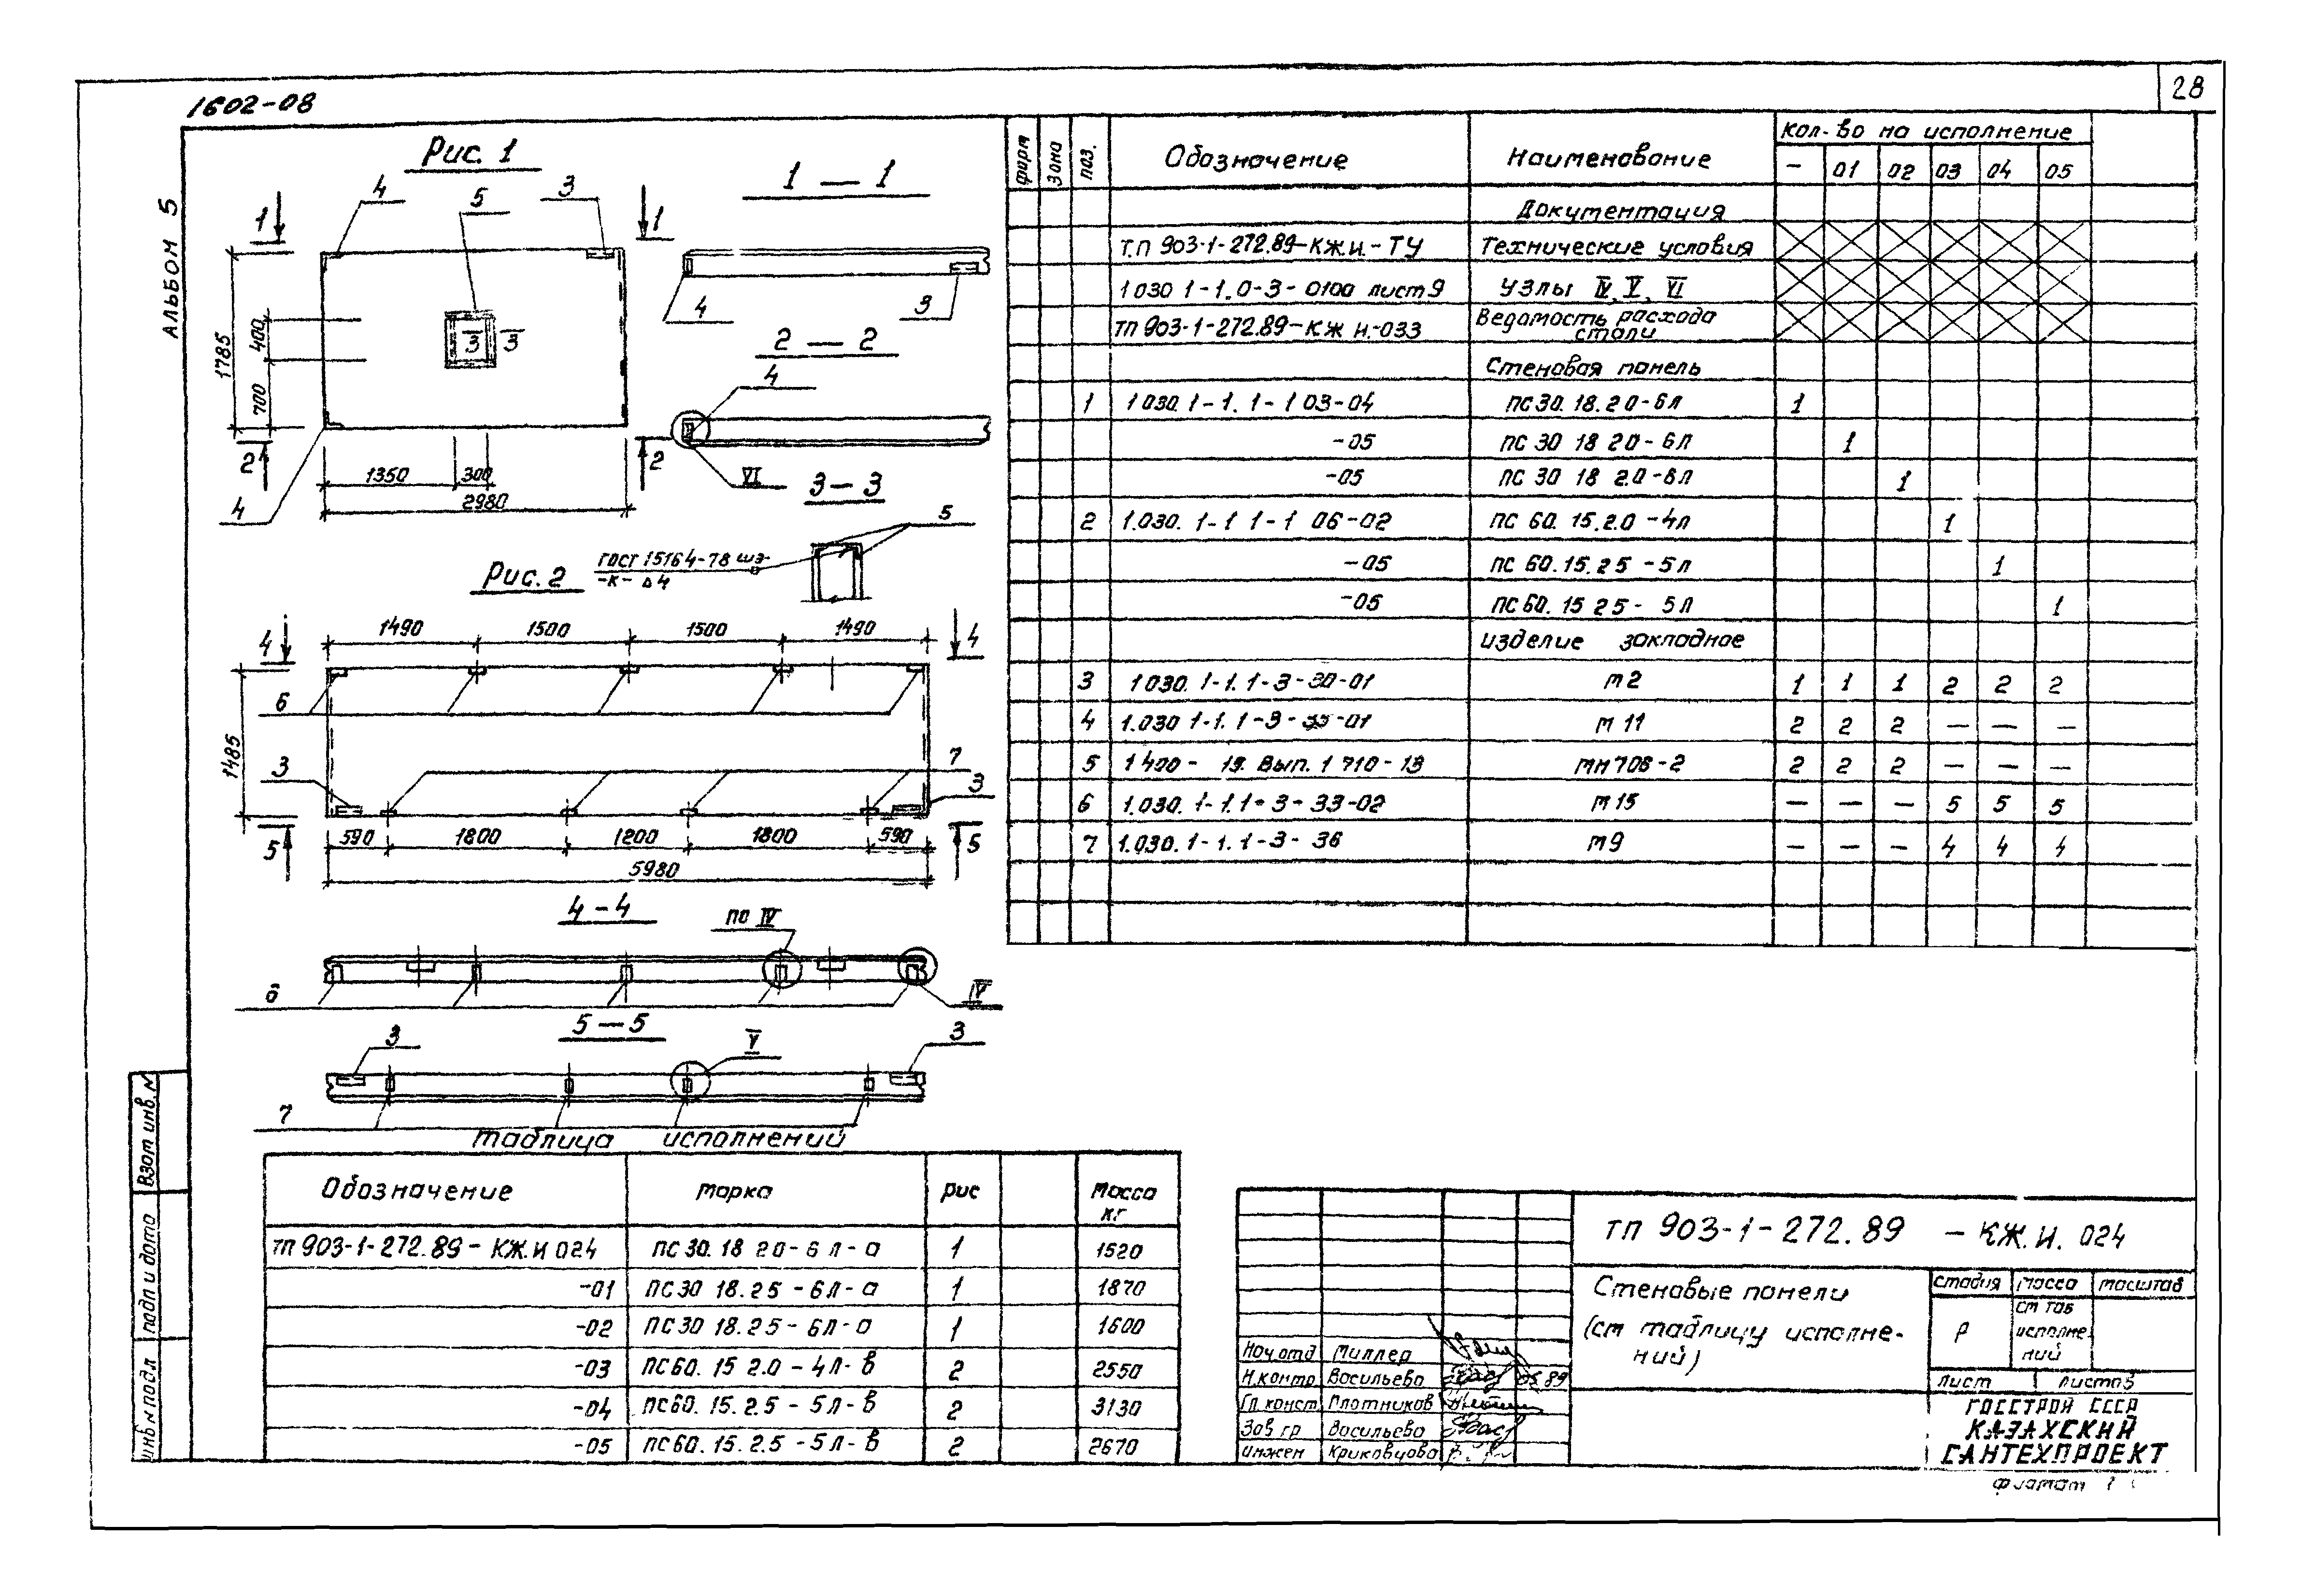 28
1602-08
АЛЬБОМ 5
Рис. 1
1 — 1
4
5
3
1
1
3 3
1785
400
700
2
2
1350
300
2980
4
4
3
2 — 2
4
VI
3 — 3
5
Рис. 2
ГОСТ 15164-78
-К- Δ4
4
1490
1500
1500
1490
4
6
1485
3
7
3
5
590
1800
1200
1800
590
5
5980
4 - 4
по IV
6
IV
5 — 5
3
V
3
7
таблица исполнений
Обозначение марка рис Масса кг
ТП 903-1-272.89 - КЖ.И 024 ПС 30.18 20-6л-а 1 1520
-01 ПС30 18.25-6л-а 1 1870
-02 ПС30 18.25-6л-а 1 1600
-03 ПС60. 15 2.0-4л-в 2 2550
-04 ПС60. 15. 2.5-5л-в 2 3130
-05 ПС60. 15. 2.5-5л-в 2 2670
форм зона поз. Обозначение Наименование Кол-во на исполнение
- 01 02 03 04 05
Документация
Т.П 903-1-272.89-КЖ.И.-ТУ Технические условия
1030 1-1.0-3-0100 лист 9 Узлы IV, V, VI
ТП 903-1-272.89-КЖ И.-033 Ведомость расхода стали
Стеновая панель
1 1030.1-1.1-1 03-04 ПС30.18.20-6л 1
-05 ПС 30 18 20-6л 1
-05 ПС 30 18 2.0-6л 1
2 1.030. 1-1 1-1 06-02 ПС 60.15.2.0-4л 1
-05 ПС 60.15.25-5л 1
-05 ПС60.15 25-5л 1
изделие закладное
3 1030. 1-1. 1-3-30-01 м2 1 1 1 2 2 2
4 1.030 1-1. 1-3-35-01 м 11 2 2 2 — — —
5 1400- 15. Вып. 1 710-13 МН706-2 2 2 2 — — —
6 1.030. 1-1.1-3-33-02 м15 — — — 5 5 5
7 1.030. 1-1.1-3-36 м9 — — — 4 4 4
ТП 903-1-272.89 - КЖ.И. 024
Стеновые панели
(см таблицу исполне-
ний)
стадия масса масштаб
Р см таб исполне- ний
лист листов
ГОССТРОЙ СССР
КАЗАХСКИЙ
САНТЕХПРОЕКТ
Формат
Нач.отд Миллер
Н.контр Васильева 05 89
Гл. конст Плотников
Зав гр Васильева
инжен Криковцова
Взам инв. N
подп и дата
инв N подл